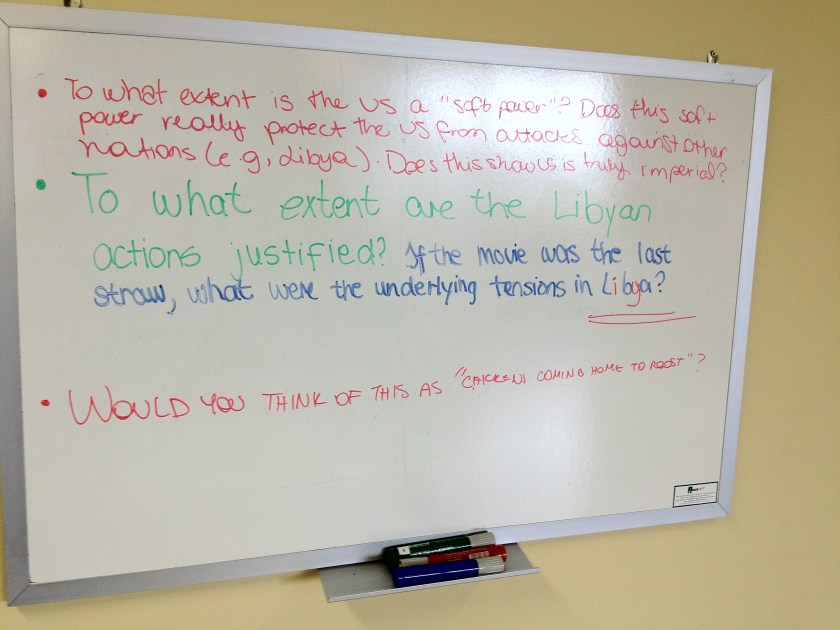 • To what extent is the US a "soft power"? Does this soft
power really protect the US from attacks against other
nations (e.g, Libya). Does this show US is truly imperial?
• To what extent are the Libyan
actions justified? If the movie was the last
straw, what were the underlying tensions in Libya?
• WOULD YOU THINK OF THIS AS "CHICKENS COMING HOME TO ROOST"?